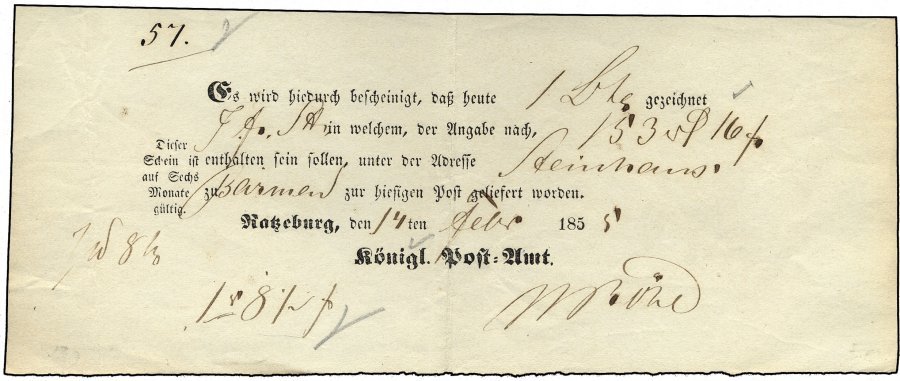 57.
Es wird hiedurch bescheinigt, daß heute 1 gezeichnet
in welchem, der Angabe nach, 153 16
Dieser Schein ist auf Sechs Monate gültig.
enthalten sein sollen, unter der Adresse Steinhaus
zu Barmen zur hiesigen Post geliefert worden.
Ratzeburg, den 14ten Febr 1855
Königl. Post-Amt.